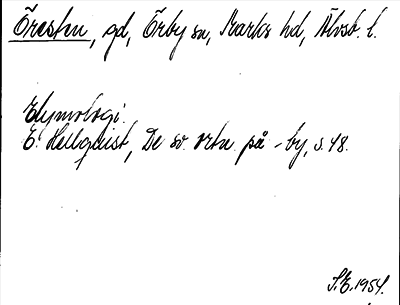 Öresten, gd, Örby sn, Marks hd, Älvsb. l.
Etymologi:
E. Hellquist, De sv. ortn. på -by, s. 48.
S.E. 1954.